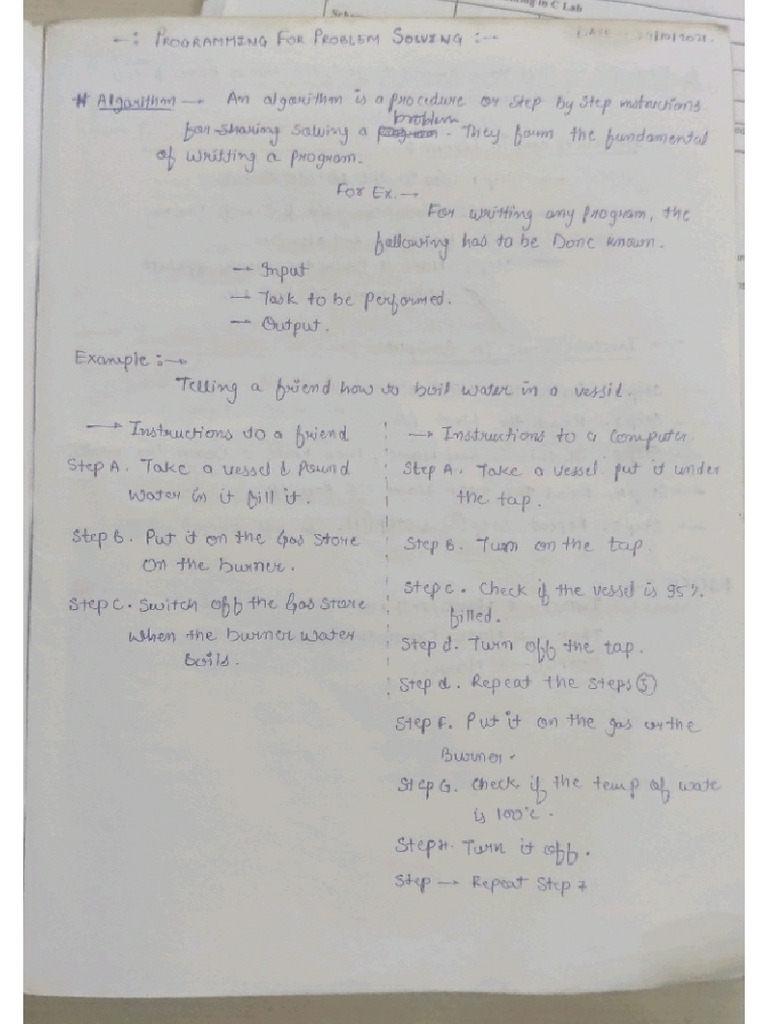 Sche
ing in C Lab
-: PROGRAMMING FOR PROBLEM SOLVING :-
DATE
# Algorithm → An algorithm is a procedure or step by step instructions
problem
for sharing solving a program. They form the fundamental
of writting a program.
For Ex. →
For writting any program, the
following has to be Done known.
→ Input
→ Task to be performed.
→ Output.
Example :→
Telling a friend how to boil water in a vessil.
→ Instructions to a friend
Step A. Take a vessel & Pound
water in it fill it.
Step B. Put it on the Gas store
On the burner.
Step C. Switch off the Gas store
when the burner water
boils.
→ Instructions to a Computer
Step A. Take a vessel put it under
the tap.
Step B. Turn on the tap.
Step C. Check if the vessel is 95%
filled.
Step d. Turn off the tap.
Step d. Repeat the steps (3)
Step F. Put it on the gas on the
Burner.
Step G. Check if the temp of wate
is 100°C.
Step H. Turn it off.
Step → Repeat Step 7